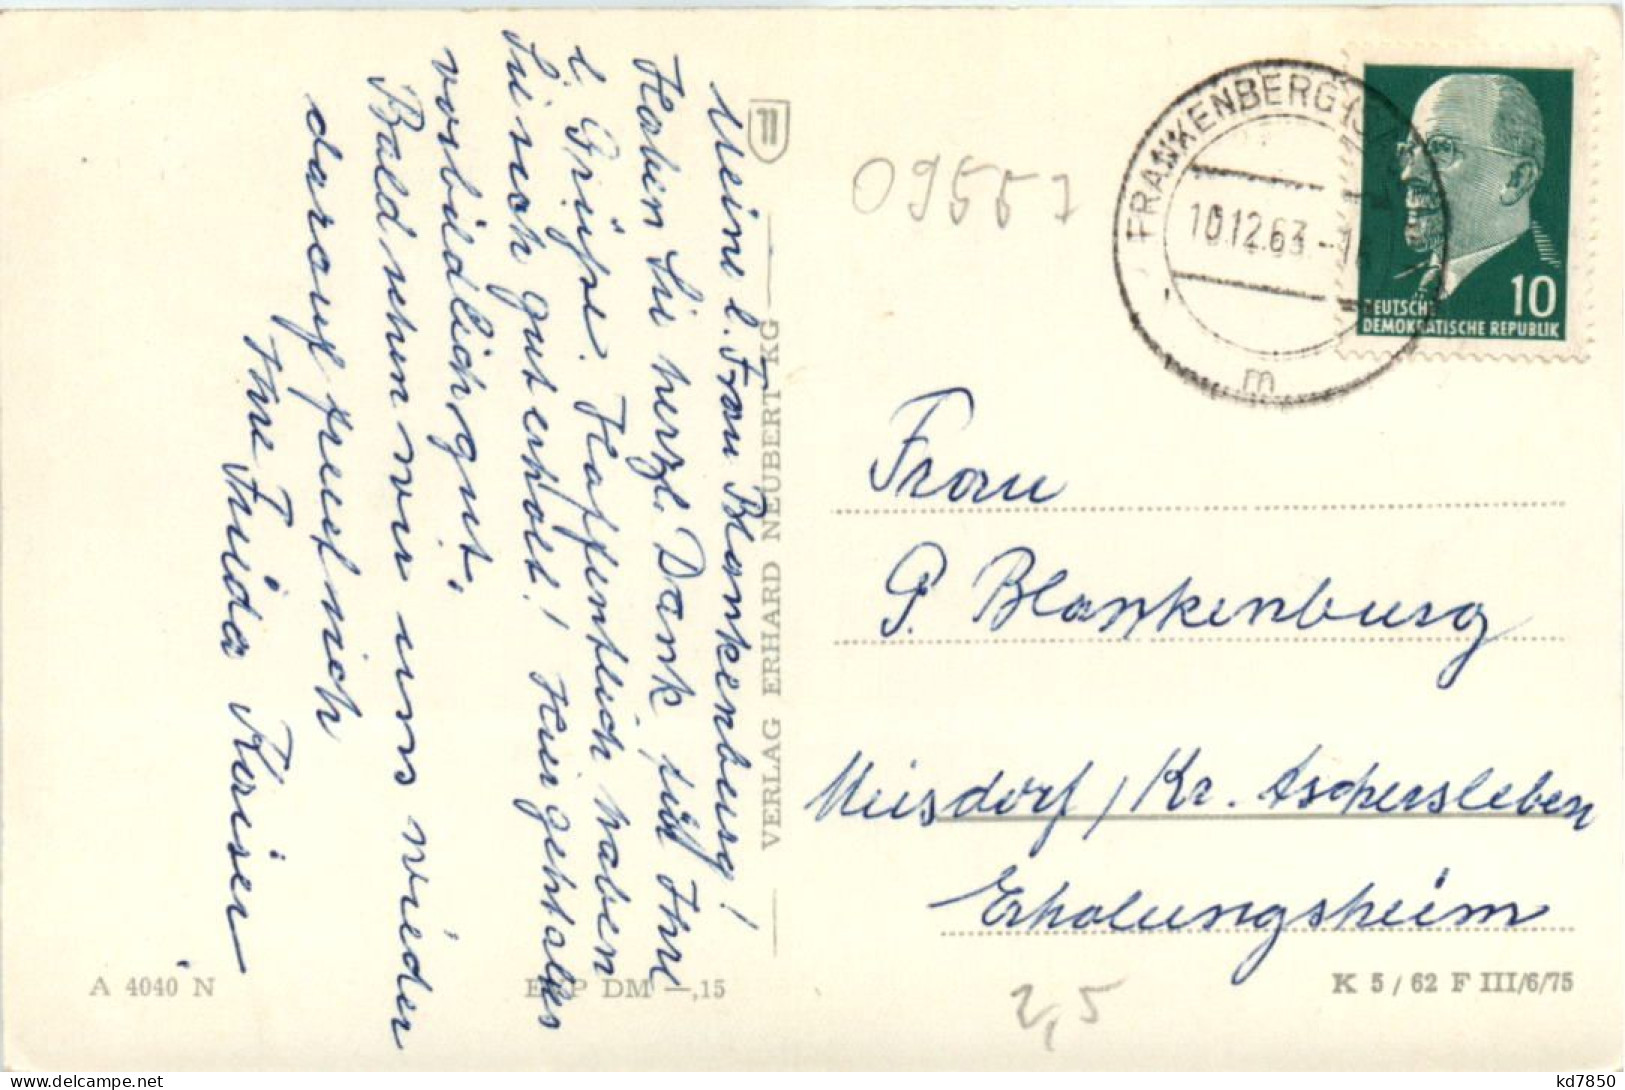 Meine l. Frau Blankenburg!
Haben Sie herzl. Dank für Ihre
l. Grüße. Hoffentlich haben
Sie sich gut erholt! Hier geht alles
vorbildlich gut.
Bald sehen wir uns wieder
darauf freut sich
Ihre Frieda
VERLAG ERHARD NEUBERT KG
09557
FRANKENBERG (S
10.12.63.-1
m
10
DEUTSCHE
DEMOKRATISCHE REPUBLIK
Frau
P. Blankenburg
Meisdorf / Kr. Aschersleben
Erholungsheim
A 4040 N
EVP DM -,15
K 5 / 62 F III/6/75
2,5
kd7850